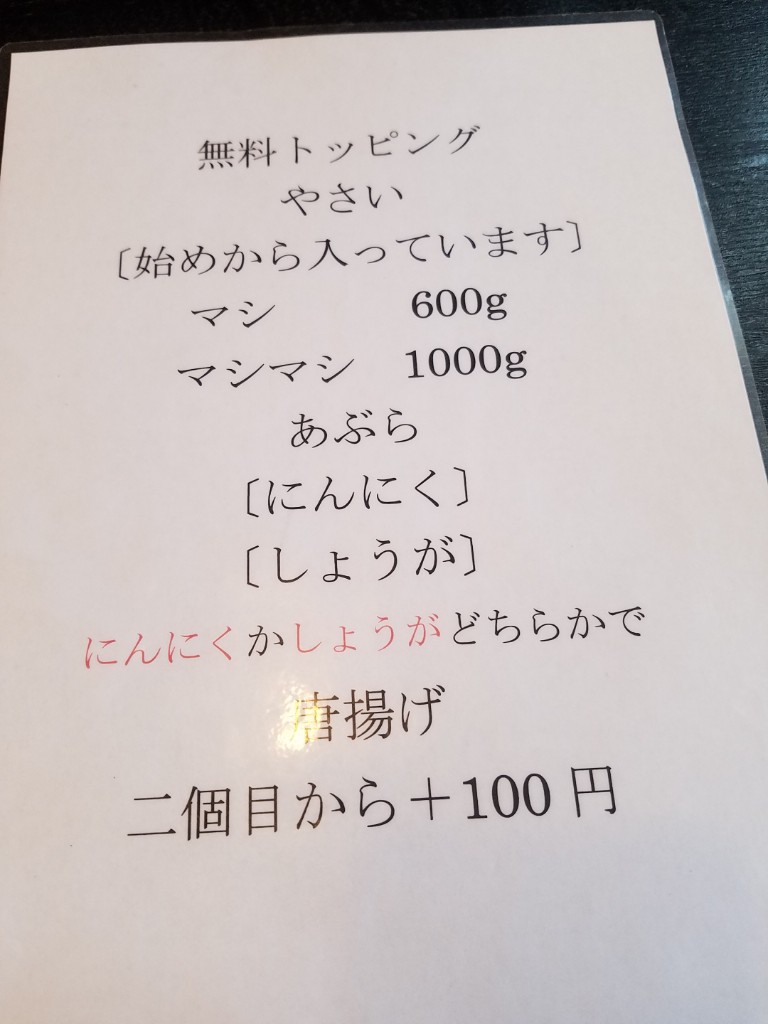 無料トッピング
やさい
〔始めから入っています〕
マシ 600g
マシマシ 1000g
あぶら
〔にんにく〕
〔しょうが〕
にんにくかしょうがどちらかで
唐揚げ
二個目から＋100円